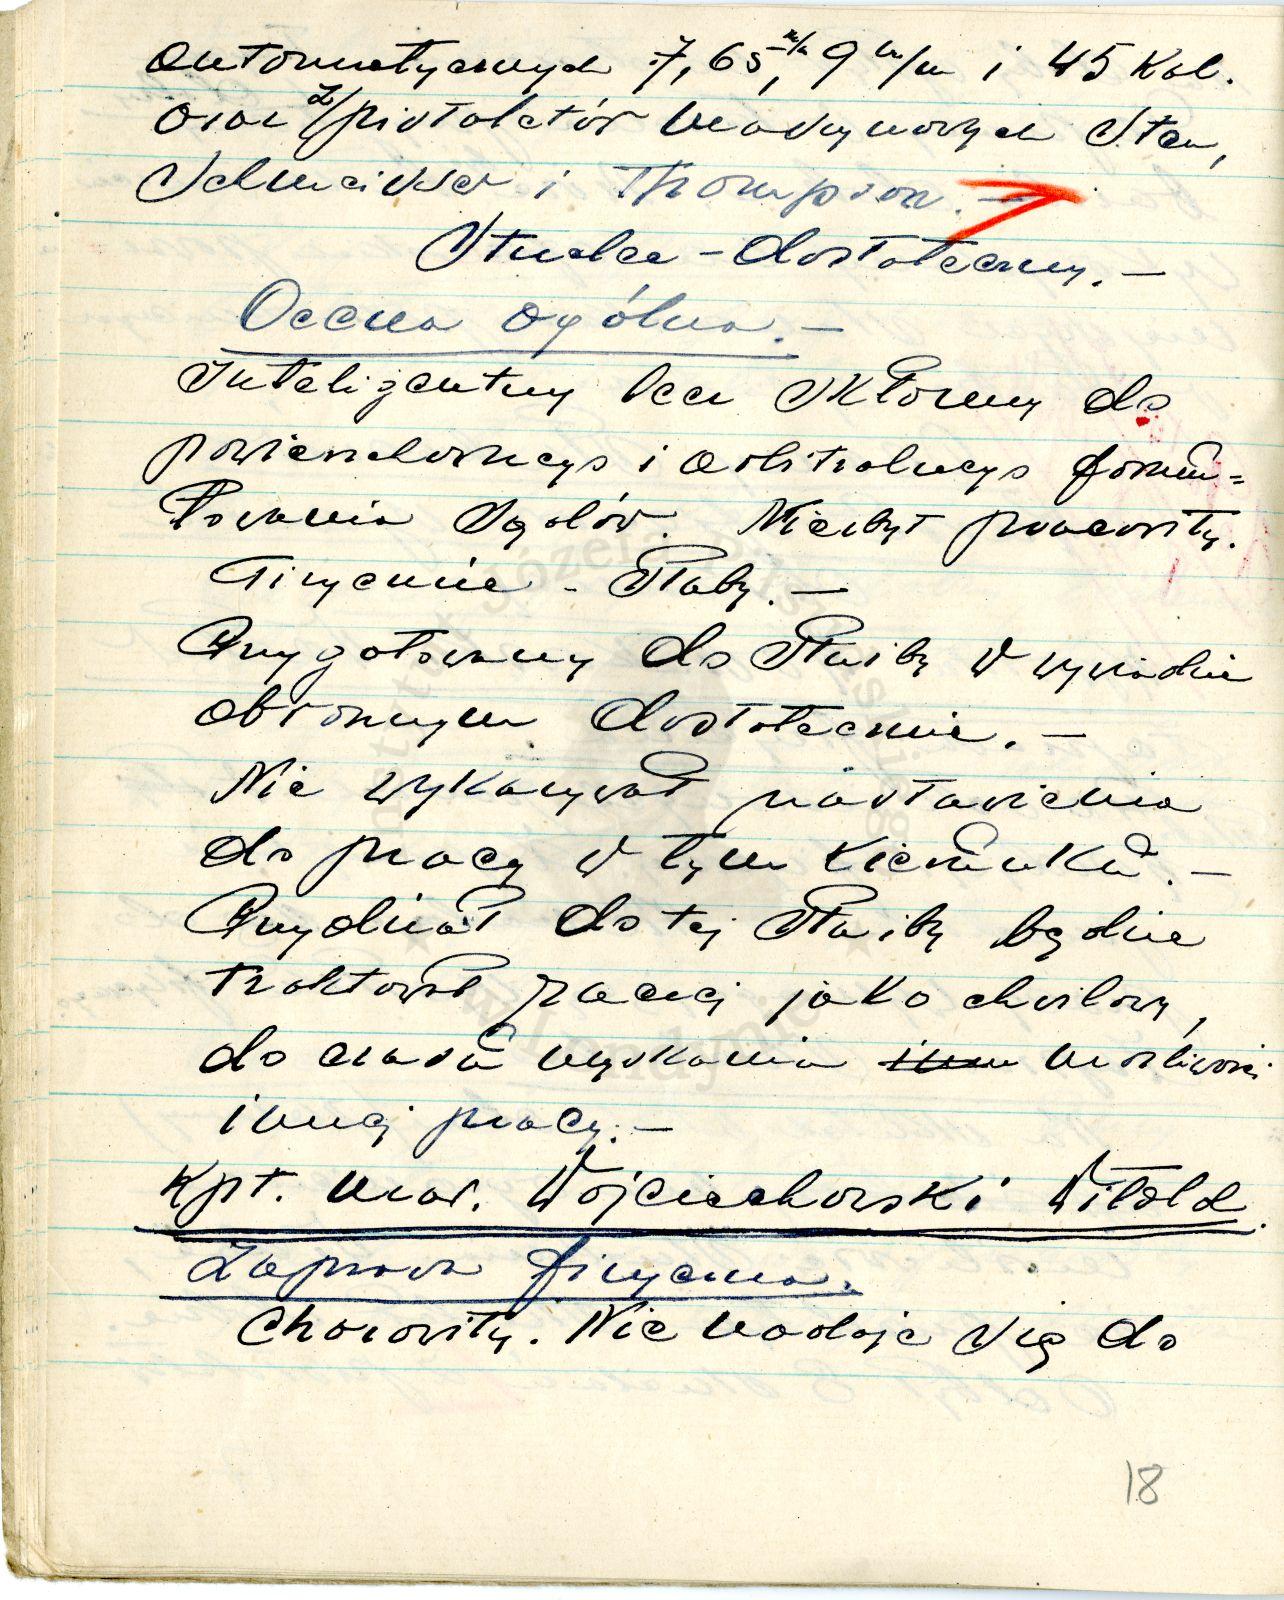 automatycznych 7,65 m/m, 9 m/m i 45 kal.
oraz z/ pistoletów maszynowych Sten,
Schmeisser i Thompson. —
Strzelec – dostateczny. —
Ocena ogólna. —
Inteligentny lecz skłonny do
powierzchownego i arbitralnego formu=
łowania sądów. Niezbyt pracowity.
Fizycznie - słaby. —
Przygotowany do służby w wywiadzie
obronnym dostatecznie. —
Nie wykazywał nastawienia
do pracy w tym kierunku. —
Przydział do tej służby będzie
traktował raczej jako chwilowy,
do czasu uzyskania inn możliwości
innej pracy. —
Kpt. mar. Wojciechowski Witold.
Zaprawa fizyczna.
Chorowity. Nie nadaje się do
18